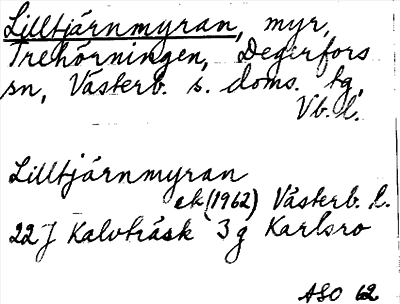 Lilltjärnmyran, myr,
Trehörningen, Degerfors
sn, Västerb. s. doms. tg,
Vb. l.
Lilltjärnmyran
ek (1962) Västerb. l.
22 J Kalvträsk 3 g Karlsro
ASO 62